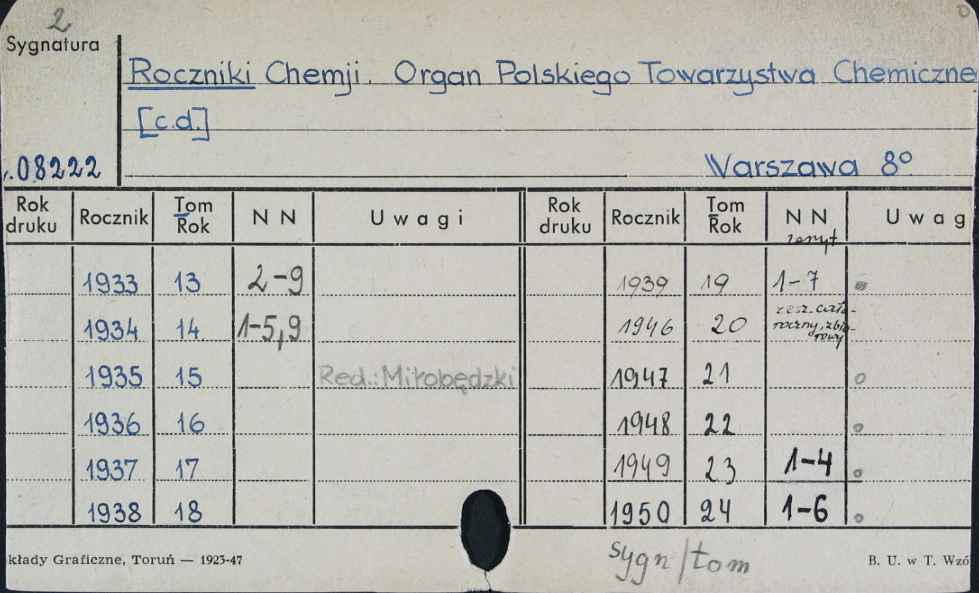 2
Sygnatura
Roczniki Chemji. Organ Polskiego Towarzystwa Chemiczne
[c.d.]
.08222
Warszawa 8º
Rok druku Rocznik Tom Rok N N Uwagi Rok druku Rocznik Tom Rok N N zeszyt Uwag
1933 13 2-9 1939 19 1-7
1934 14 1-5,9 1946 20 zesz. cało-roczny, zbio-rowy
1935 15 Red.: Miłobędzki 1947 21
1936 16 1948 22
1937 17 1949 23 1-4
1938 18 1950 24 1-6
kłady Graficzne, Toruń — 1923-47
sygn/tom
B. U. w T. Wzó